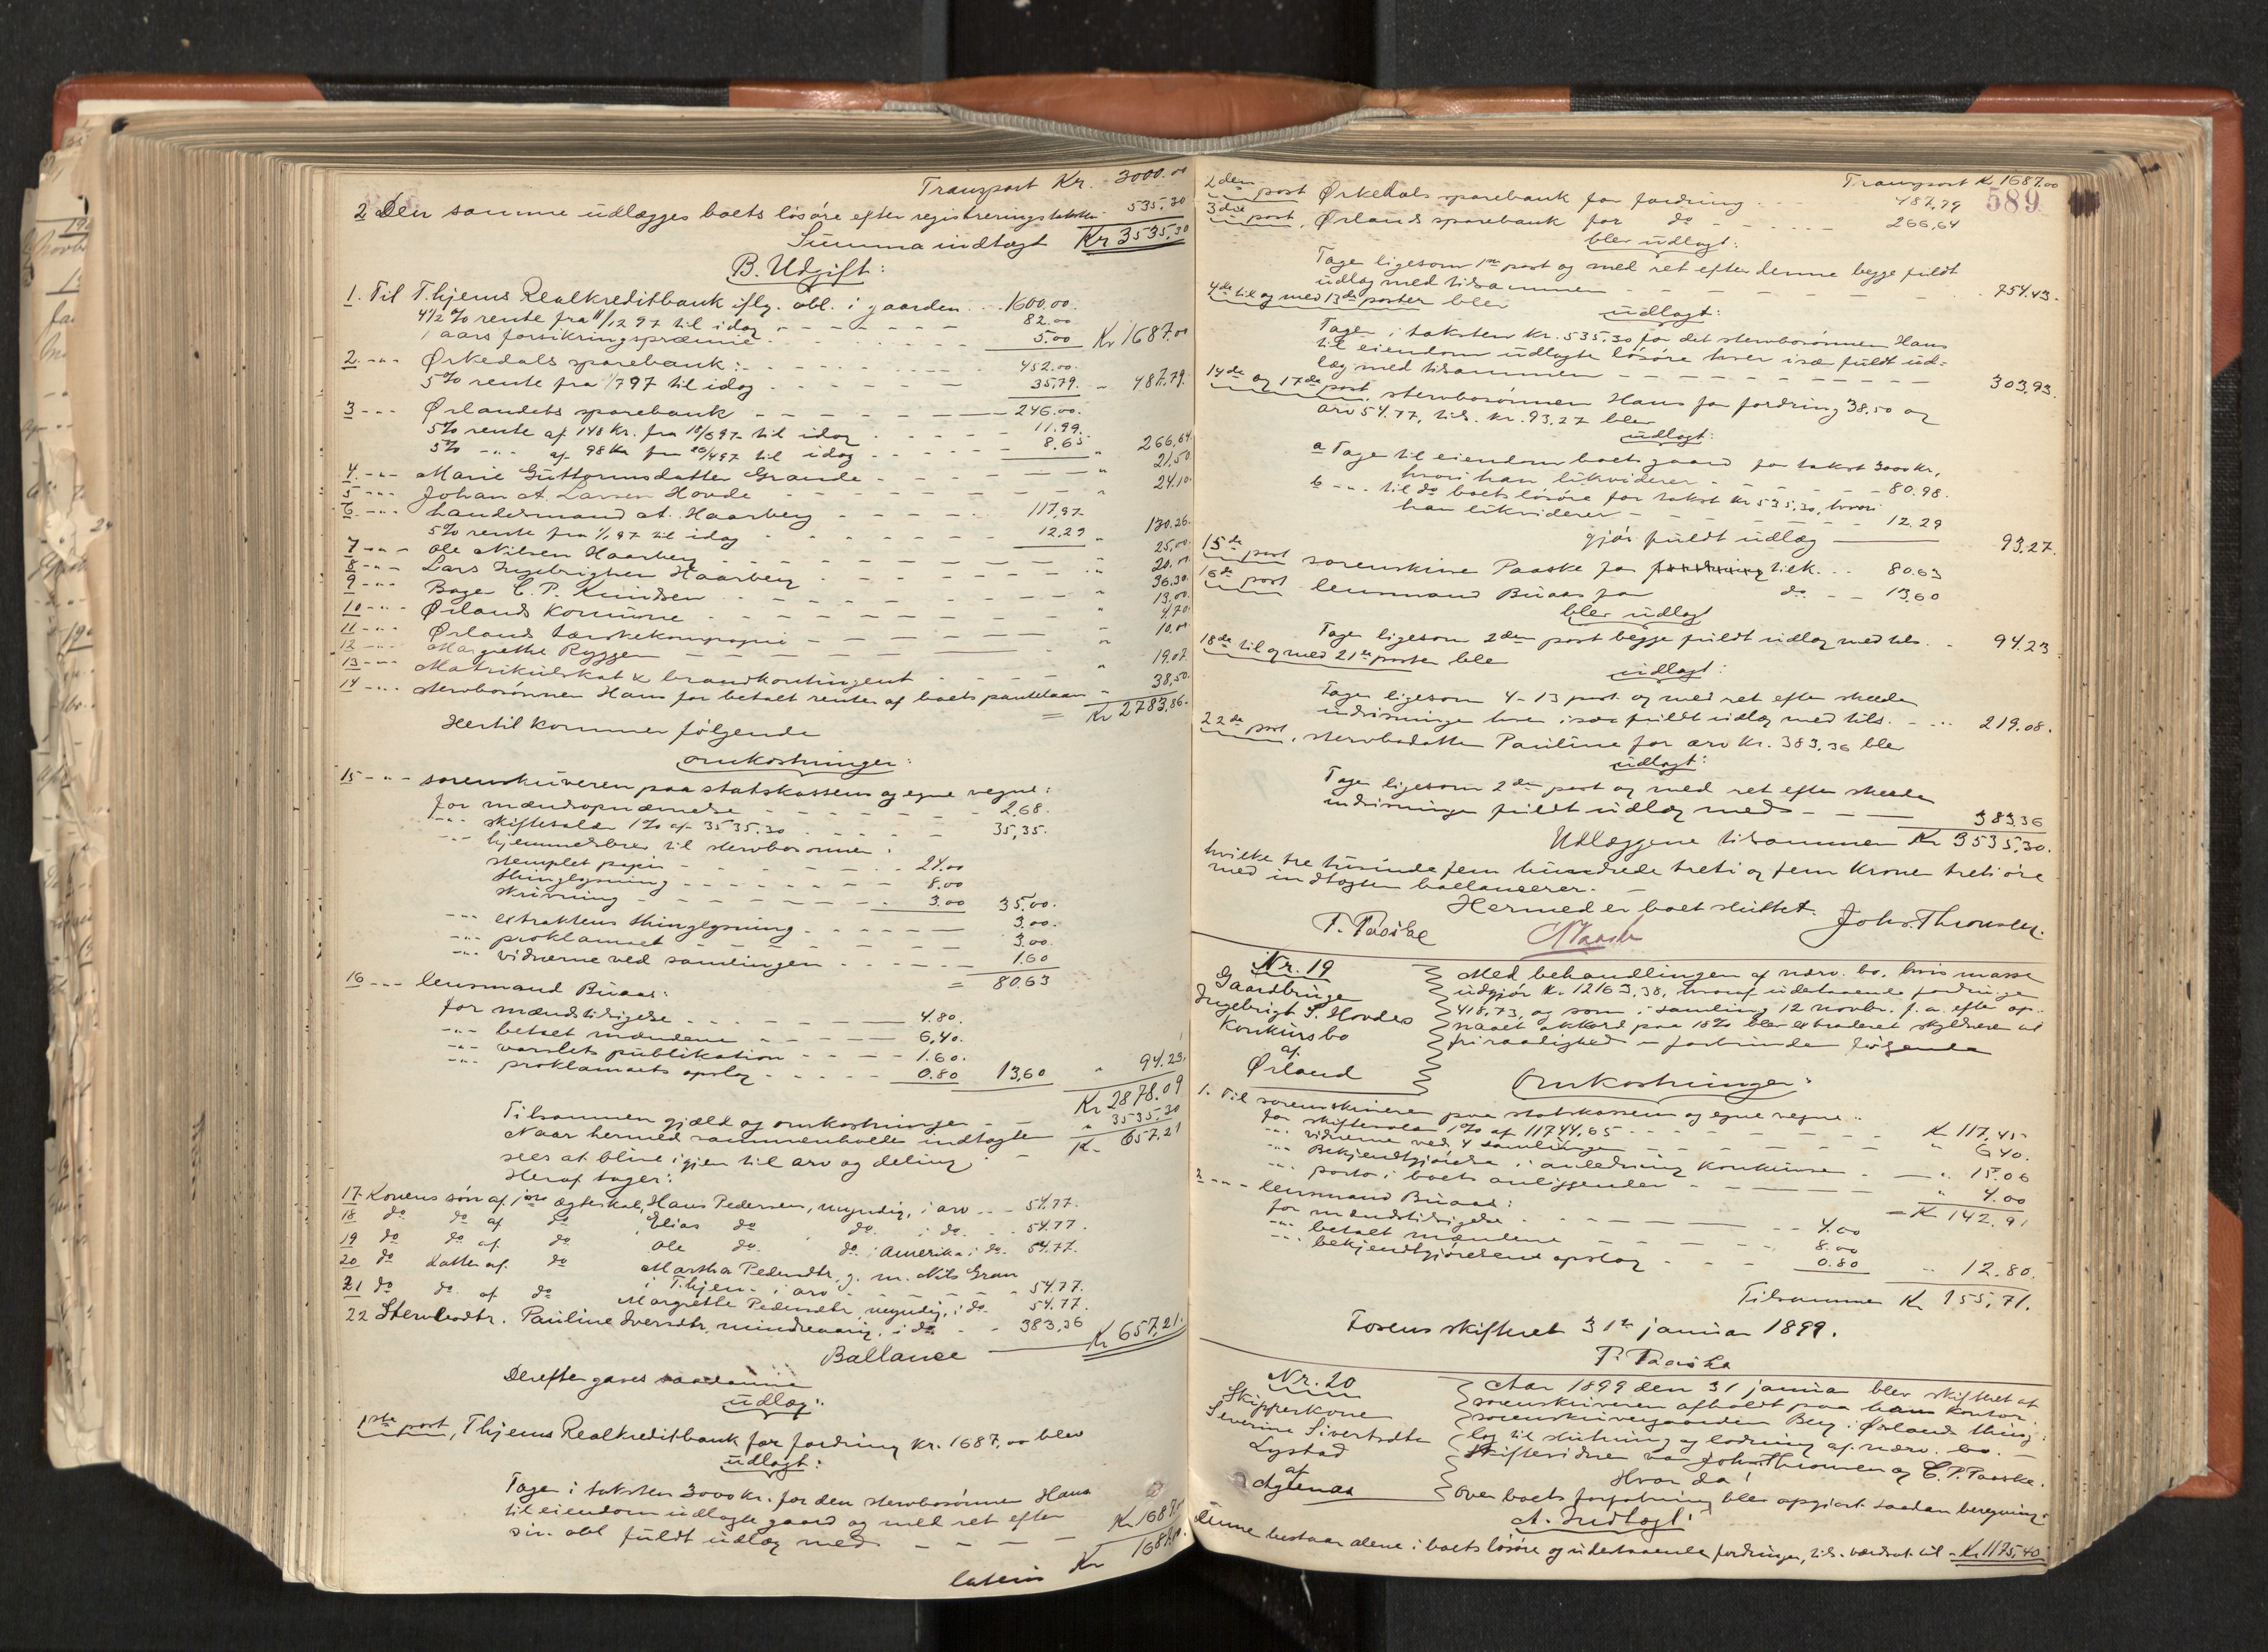 Transport Kr. 3000.00
2 Den samme udlægges boets løsøre efter registreringstaksten 535.30
Summa indtægt Kr 3535,30
B. Udgift:
1. Til T.hjems Realkreditbank iflg. obl. i gaarden . . 1600.00.
4 1/2 % rente fra 11/12 97 til idag - - - - - 82.00
1 aars forsikringspræmie . . . . 5.00 Kr 1687.00
2. -"- Ørkedals sparebank: - - - - - - 452.00.
5% rente fra 1/7 97 til idag . - - - - 35,79. - 487,79.
3 -"- Ørlandets sparebank - - - - - - 246.00.
5% rente af 148 Kr. fra 18/6 97 til idag . - - - 11.99.
5% -"- af 98 Kr fra 26/4 97 til idag . . . . 8.65 " 266,64
4. -"- Marie Guttormsdatter Grande - - - - " 21,50
5 -"- Johan A. Larsen Hovde - - - - " 24.10.
6. -"- handelsmand A. Haarberg - - - - 117,97
5% rente fra 1/1 97 til idag - - - - 12,29 " 130.26.
7 -"- Ole Nilsen Haarberg - - - - " 25,00
8 -"- Lars Ingebrigtsen Haarberg . - - - " 20.00
9 -"- Bager C. P. Knudsen . . - - - " 36.30.
10 -"- Ørlands Komune - - - - " 13.00.
11 -"- Ørlands tærskekompagni - - - - " 4,70.
12 -"- Margrethe Ryggen - - - - " 10.00
13 -"- Matrikulskat & brandkontingent - - - " 19.07.
14 -"- stervbosønnen Hans for betalt renter af boets pantelaan " 38,50.
= Kr 2783,86.
Hertil kommer følgende
omkostninger:
15 -"- sorenskriveren paa statskassens og egne vegne:
for mændsopnævnelse - - - - - 2,68.
-"- skiftesalær 1% af 3535.30 . . . . - 35,35.
-"- hjemmelsbrev til stervbosønnen:
stemplet papir - - - - 24.00
thinglysning - - - - 8.00
skrivning - - - - 3.00 35,00.
-"- extraktens thinglysning . - - - - 3.00.
-"- proklamaet - - - - - 3.00.
-"- vidnerne ved samlingen . - - - - 1.60
= 80.63
16 -"- lensmand Buaas:
for mændstilsigelse . . . . - - 4.80.
-"- betalt mændene - - - - 6,40.
-"- varslets publikation - - - - 1.60.
-"- proklamaets opslag - - - - 0.80 13,60 " 94.23.
Kr 2878.09
Tilsammen gjæld og omkostninger - -
Naar hermed sammenholdes indtægten " 3535.30
sees at blive igjen til arv og deling - Kr 657,21
Heraf tager:
17 Konens søn af 1ste ægteskab, Hans Pedersen, myndig, i arv - - 54.77.
18 do do af do Elias do do i do - - 54.77.
19 do do af do Ole do do i Amerika i do 54.77.
20 do datter af do Martha Pedersdtr, g. m. Nils Gran
i T.hjem i arv - - - - 54.77.
21 do do af do Margrethe Pedersdtr, myndig, i do - 54.77.
22 Stervbodtr. Pauline Iversdtr, mindreaarig, i do - - 383,36
Ballance Kr 657,21.
Derefter gaves saadanne
udlæg:
1ste post, T.hjems Realkreditbank for fordring kr. 1687,00 blev
udlagt:
Tager i taksten 3000 kr. for den stervbosønnen Hans
til eiendom udlagte gaard og med ret efter
sin obl fuldt udlæg med - - - - Kr 1687.00
lateris Kr 1687.00.
Transport Kr 1687.00
589
2den post Ørkedals sparebank for fordring . . . 487,79
3die post, Ørlands sparebank for do - - - - 266,64
blev udlagt:
Tager ligesom 1ste post og med ret efter denne begge fuldt
udlæg med tilsammen - - - - - - . 754.43.
4de til og med 13de poster blev
udlagt:
Tager i taksten kr. 535.30 for det stervbosønnen Hans
til eiendom udlagte løsøre hver især fuldt ud=
læg med tilsammen - - - - - - 303,93.
14de og 17de post, stervbosønnen Hans for fordring 38,50 og
arv 54.77, tils. kr. 93.27 blev
udlagt:
a Tager til eiendom boets gaard for takst 3000 kr,
hvori han likviderer - - - - - 80.98.
b -"- til do boets løsøre for takst kr 535.30, hvori
han likviderer - - - - - 12.29
gjør fuldt udlæg 93.27.
15de post sorenskriver Paaske for fordring tilk. . . 80.63
16de post lensmand Buaas for do - - 13,60
blev udlagt
Tager ligesom 2den post begge fuldt udlæg med tils. . 94.23
18de til og med 21de poster blev
udlagt:
Tager ligesom 4-13 post og med ret efter skeede
udvisninger hver især fuldt udlæg med tils. - . . 219.08.
22de post, stervbodatter Pauline for arv kr. 383,36 blev
udlagt:
Tager ligesom 2den post og med ret efter skeede
udvisninger fuldt udlæg med - - - 383.36
Udlæggene tilsammen Kr 3535,30.
hvilke tre tusinde fem hundrede treti og fem kroner treti øre
med indtægten ballancerer. -
Hermed er boet sluttet.
T. Paaske
Joh. Thronsen.
Nr. 19
Gaardbruger
Ingebrigt S. Hovdes
Konkursbo
af
Ørland
Med behandlingen af nærv. bo, hvis masse
udgjør kr. 12163,38, hvoraf udestaaende fordringer
418,73, og som i samling 12 novbr. f. a. efter op=
naaet akkord paa 18% blev extraderet skyldneren til
friraadighed - forbundne følgende
Omkostninger:
1. Til sorenskriveren paa statskassens og egne vegne:
for skiftesalær 1% af 11744,65 - - - - Kr 117,45
-"- vidnerne ved 4 samlinger - - - - " 6.40.
-"- Bekjendtgjørelse i anledning konkursen - - " 15.06
-"- porto i boets anliggender - - - - " 4.00
= Kr 142.91
2 -"- lensmand Buaas:
for mændstilsigelse . - - - - 4.00
-"- betalt mændene - - - - 8.00
-"- bekjendtgjørelsens opslag . - - - 0.80 " 12.80.
Tilsammen Kr 155,71.
Fosens skifteret 31te januar 1899.
T. Paaske
Nr. 20
Skipperkone
Severine Sivertsdtr
Lystad
af
Agdenes
Aar 1899 den 31 januar blev skifteret af
sorenskriveren afholdt paa hans kontor,
sorenskrivergaarden Berg i Ørlands thing=
lag til slutning og lodning af nærv. bo.
Skiftevidner var Joh. Thronsen og C. P. Paaske.
Hvor da!
Over boets forfatning blev opgjort saadan beregning:
A. Indtægt:
Denne bestaar alene i boets løsøre og udestaaende fordringer, tils. værdsat til - Kr 1175,40